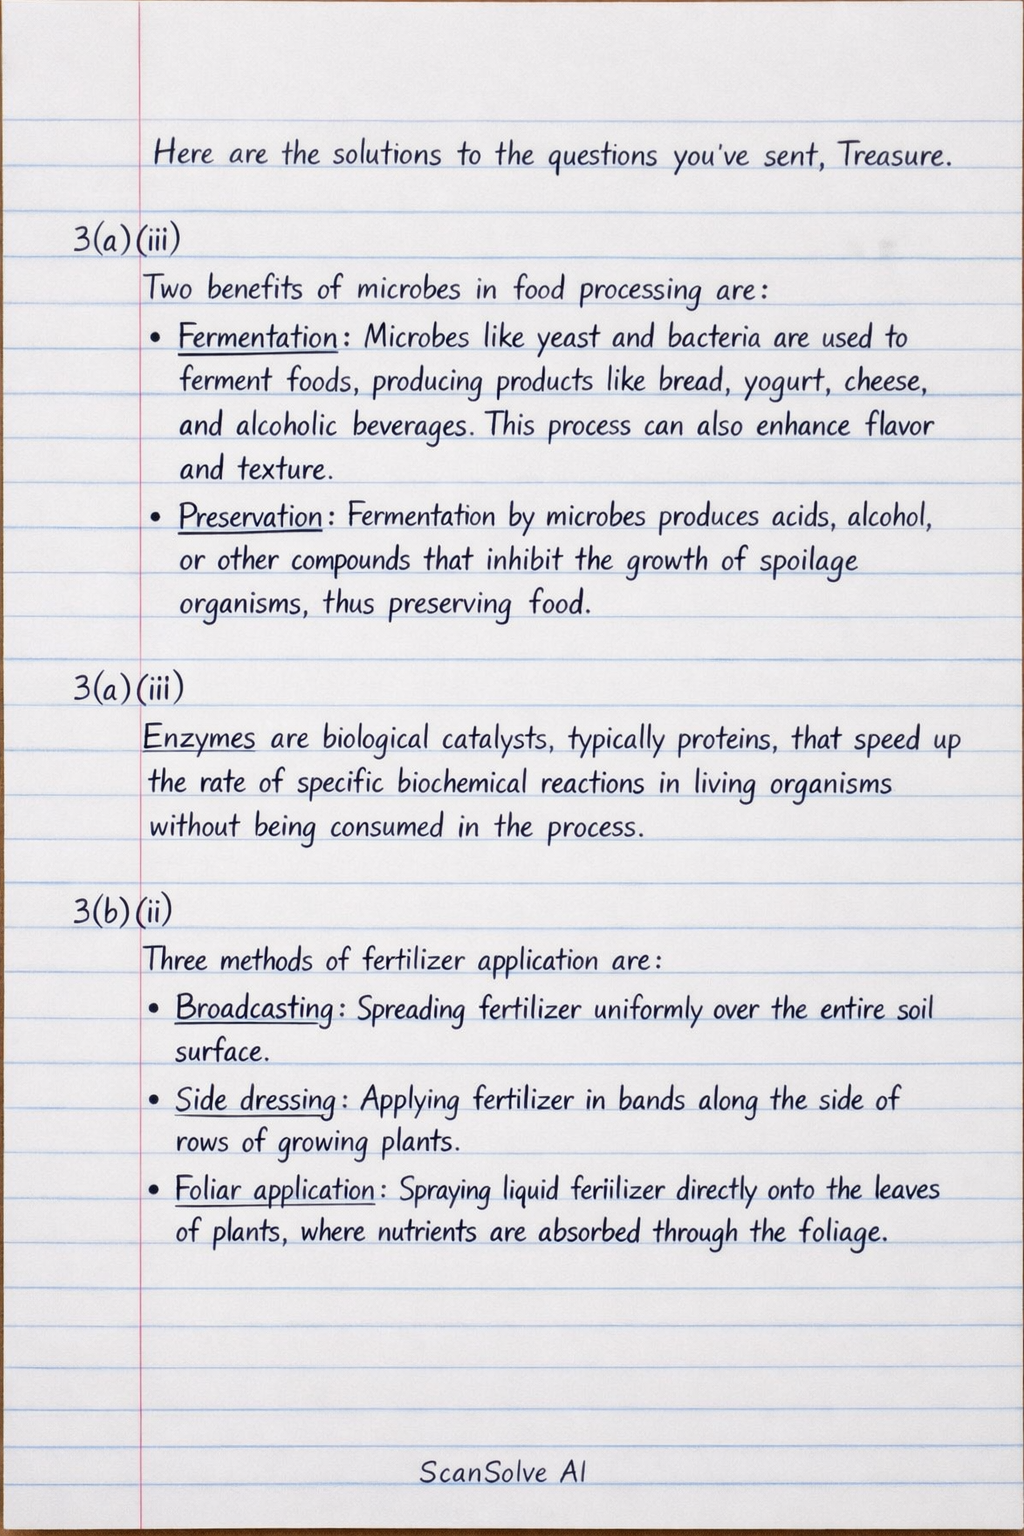 Here are the solutions to the questions you've sent, Treasure.
3(a)(iii)
Two benefits of microbes in food processing are:
• Fermentation: Microbes like yeast and bacteria are used to
ferment foods, producing products like bread, yogurt, cheese,
and alcoholic beverages. This process can also enhance flavor
and texture.
• Preservation: Fermentation by microbes produces acids, alcohol,
or other compounds that inhibit the growth of spoilage
organisms, thus preserving food.
3(a)(iii)
Enzymes are biological catalysts, typically proteins, that speed up
the rate of specific biochemical reactions in living organisms
without being consumed in the process.
3(b)(ii)
Three methods of fertilizer application are:
• Broadcasting: Spreading fertilizer uniformly over the entire soil
surface.
• Side dressing: Applying fertilizer in bands along the side of
rows of growing plants.
• Foliar application: Spraying liquid feriilizer directly onto the leaves
of plants, where nutrients are absorbed through the foliage.
ScanSolve AI